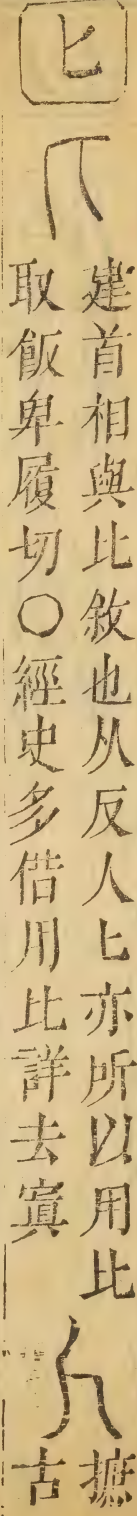 匕
建首相與比敘也从反人匕亦所以用比
取飯卑履切○經史多借用比詳去寘
摭
古